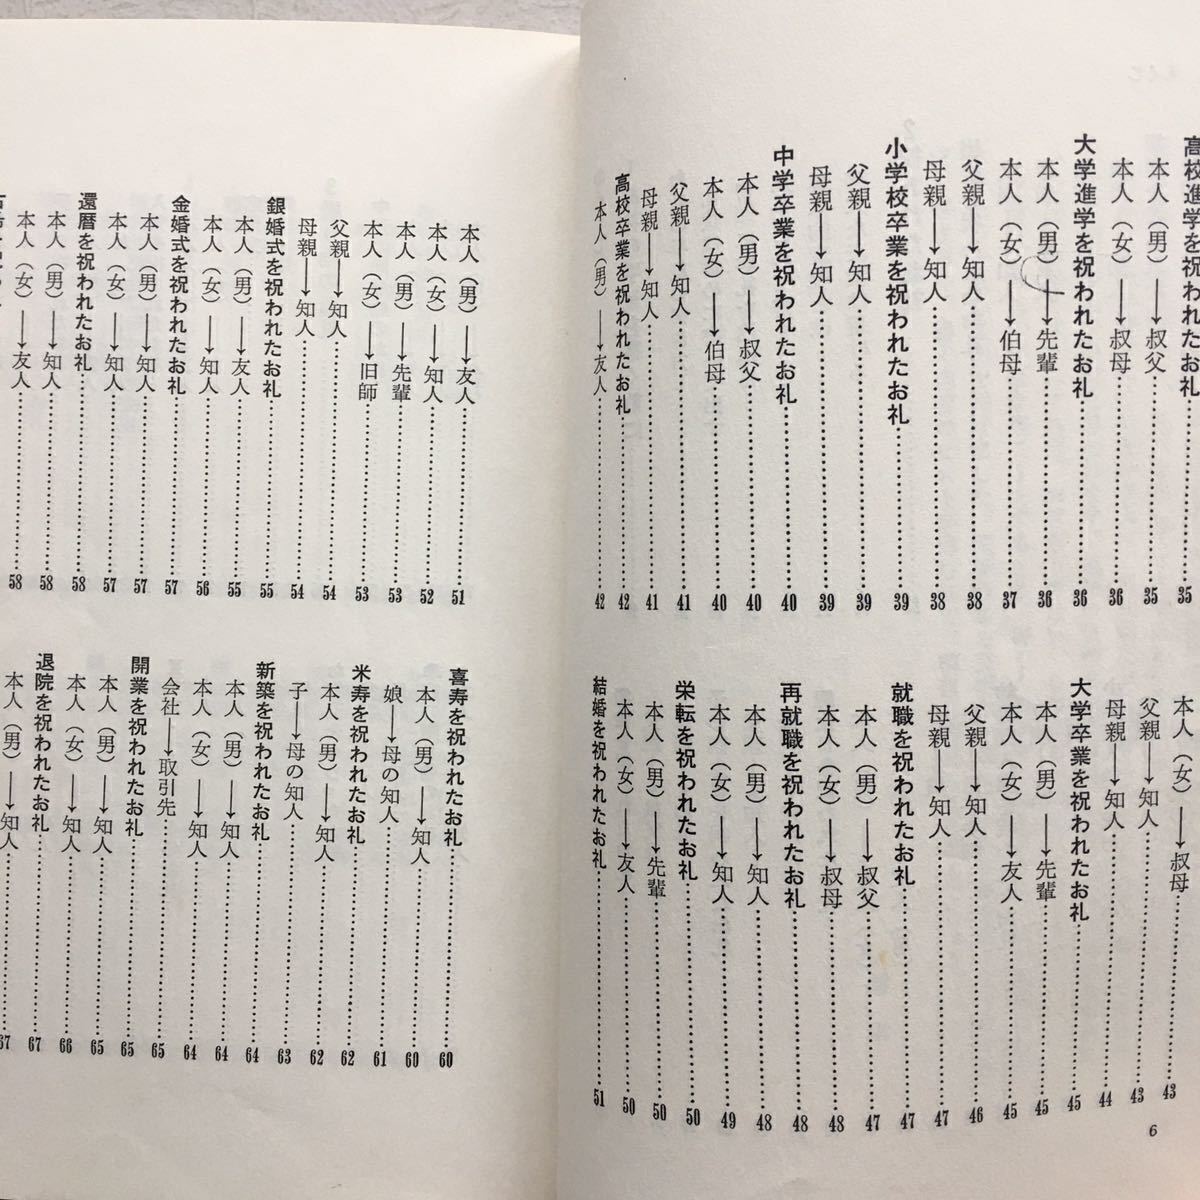 高校進学を祝われたお礼……35
本人（男）――→叔父……35
本人（女）――→叔母……36
大学進学を祝われたお礼……36
本人（男）――→先輩……36
本人（女）――→伯母……37
父親――→知人……38
母親――→知人……38
小学校卒業を祝われたお礼……39
父親――→知人……39
母親――→知人……39
中学卒業を祝われたお礼……40
本人（男）――→叔父……40
本人（女）――→伯母……40
父親――→知人……41
母親――→知人……41
高校卒業を祝われたお礼……42
本人（男）――→友人……42
本人（女）――→叔母……43
父親――→知人……43
母親――→知人……44
大学卒業を祝われたお礼……45
本人（男）――→先輩……45
本人（女）――→友人……45
父親――→知人……46
母親――→知人……47
就職を祝われたお礼……47
本人（男）――→叔父……47
本人（女）――→叔母……48
再就職を祝われたお礼……48
本人（男）――→知人……48
本人（女）――→知人……49
栄転を祝われたお礼……50
本人（男）――→先輩……50
本人（女）――→友人……50
結婚を祝われたお礼……51
6
本人（男）――→友人……51
本人（女）――→知人……52
本人（男）――→先輩……53
本人（女）――→旧師……53
父親――→知人……54
母親――→知人……54
銀婚式を祝われたお礼……55
本人（男）――→友人……55
本人（女）――→知人……56
金婚式を祝われたお礼……57
本人（男）――→知人……57
本人（女）――→知人……57
還暦を祝われたお礼……58
本人（男）――→知人……58
本人（女）――→友人……58
喜寿を祝われたお礼……60
本人（男）――→知人……60
娘――→母の知人……61
米寿を祝われたお礼……62
本人（男）――→知人……62
子――→母の知人……63
新築を祝われたお礼……64
本人（男）――→知人……64
本人（女）――→知人……64
会社――→取引先……65
開業を祝われたお礼……65
本人（男）――→知人……65
本人（女）――→知人……66
退院を祝われたお礼……67
本人（男）――→知人……67